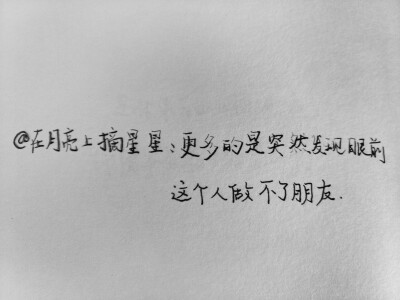 @在月亮上摘星星:更多的是突然发现眼前
这个人做不了朋友.